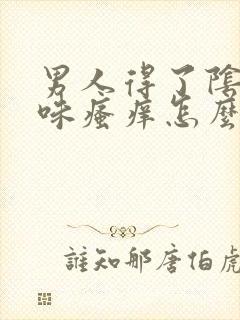 男人得了陰
味瘙痒怎麼
誰知那唐伯虎